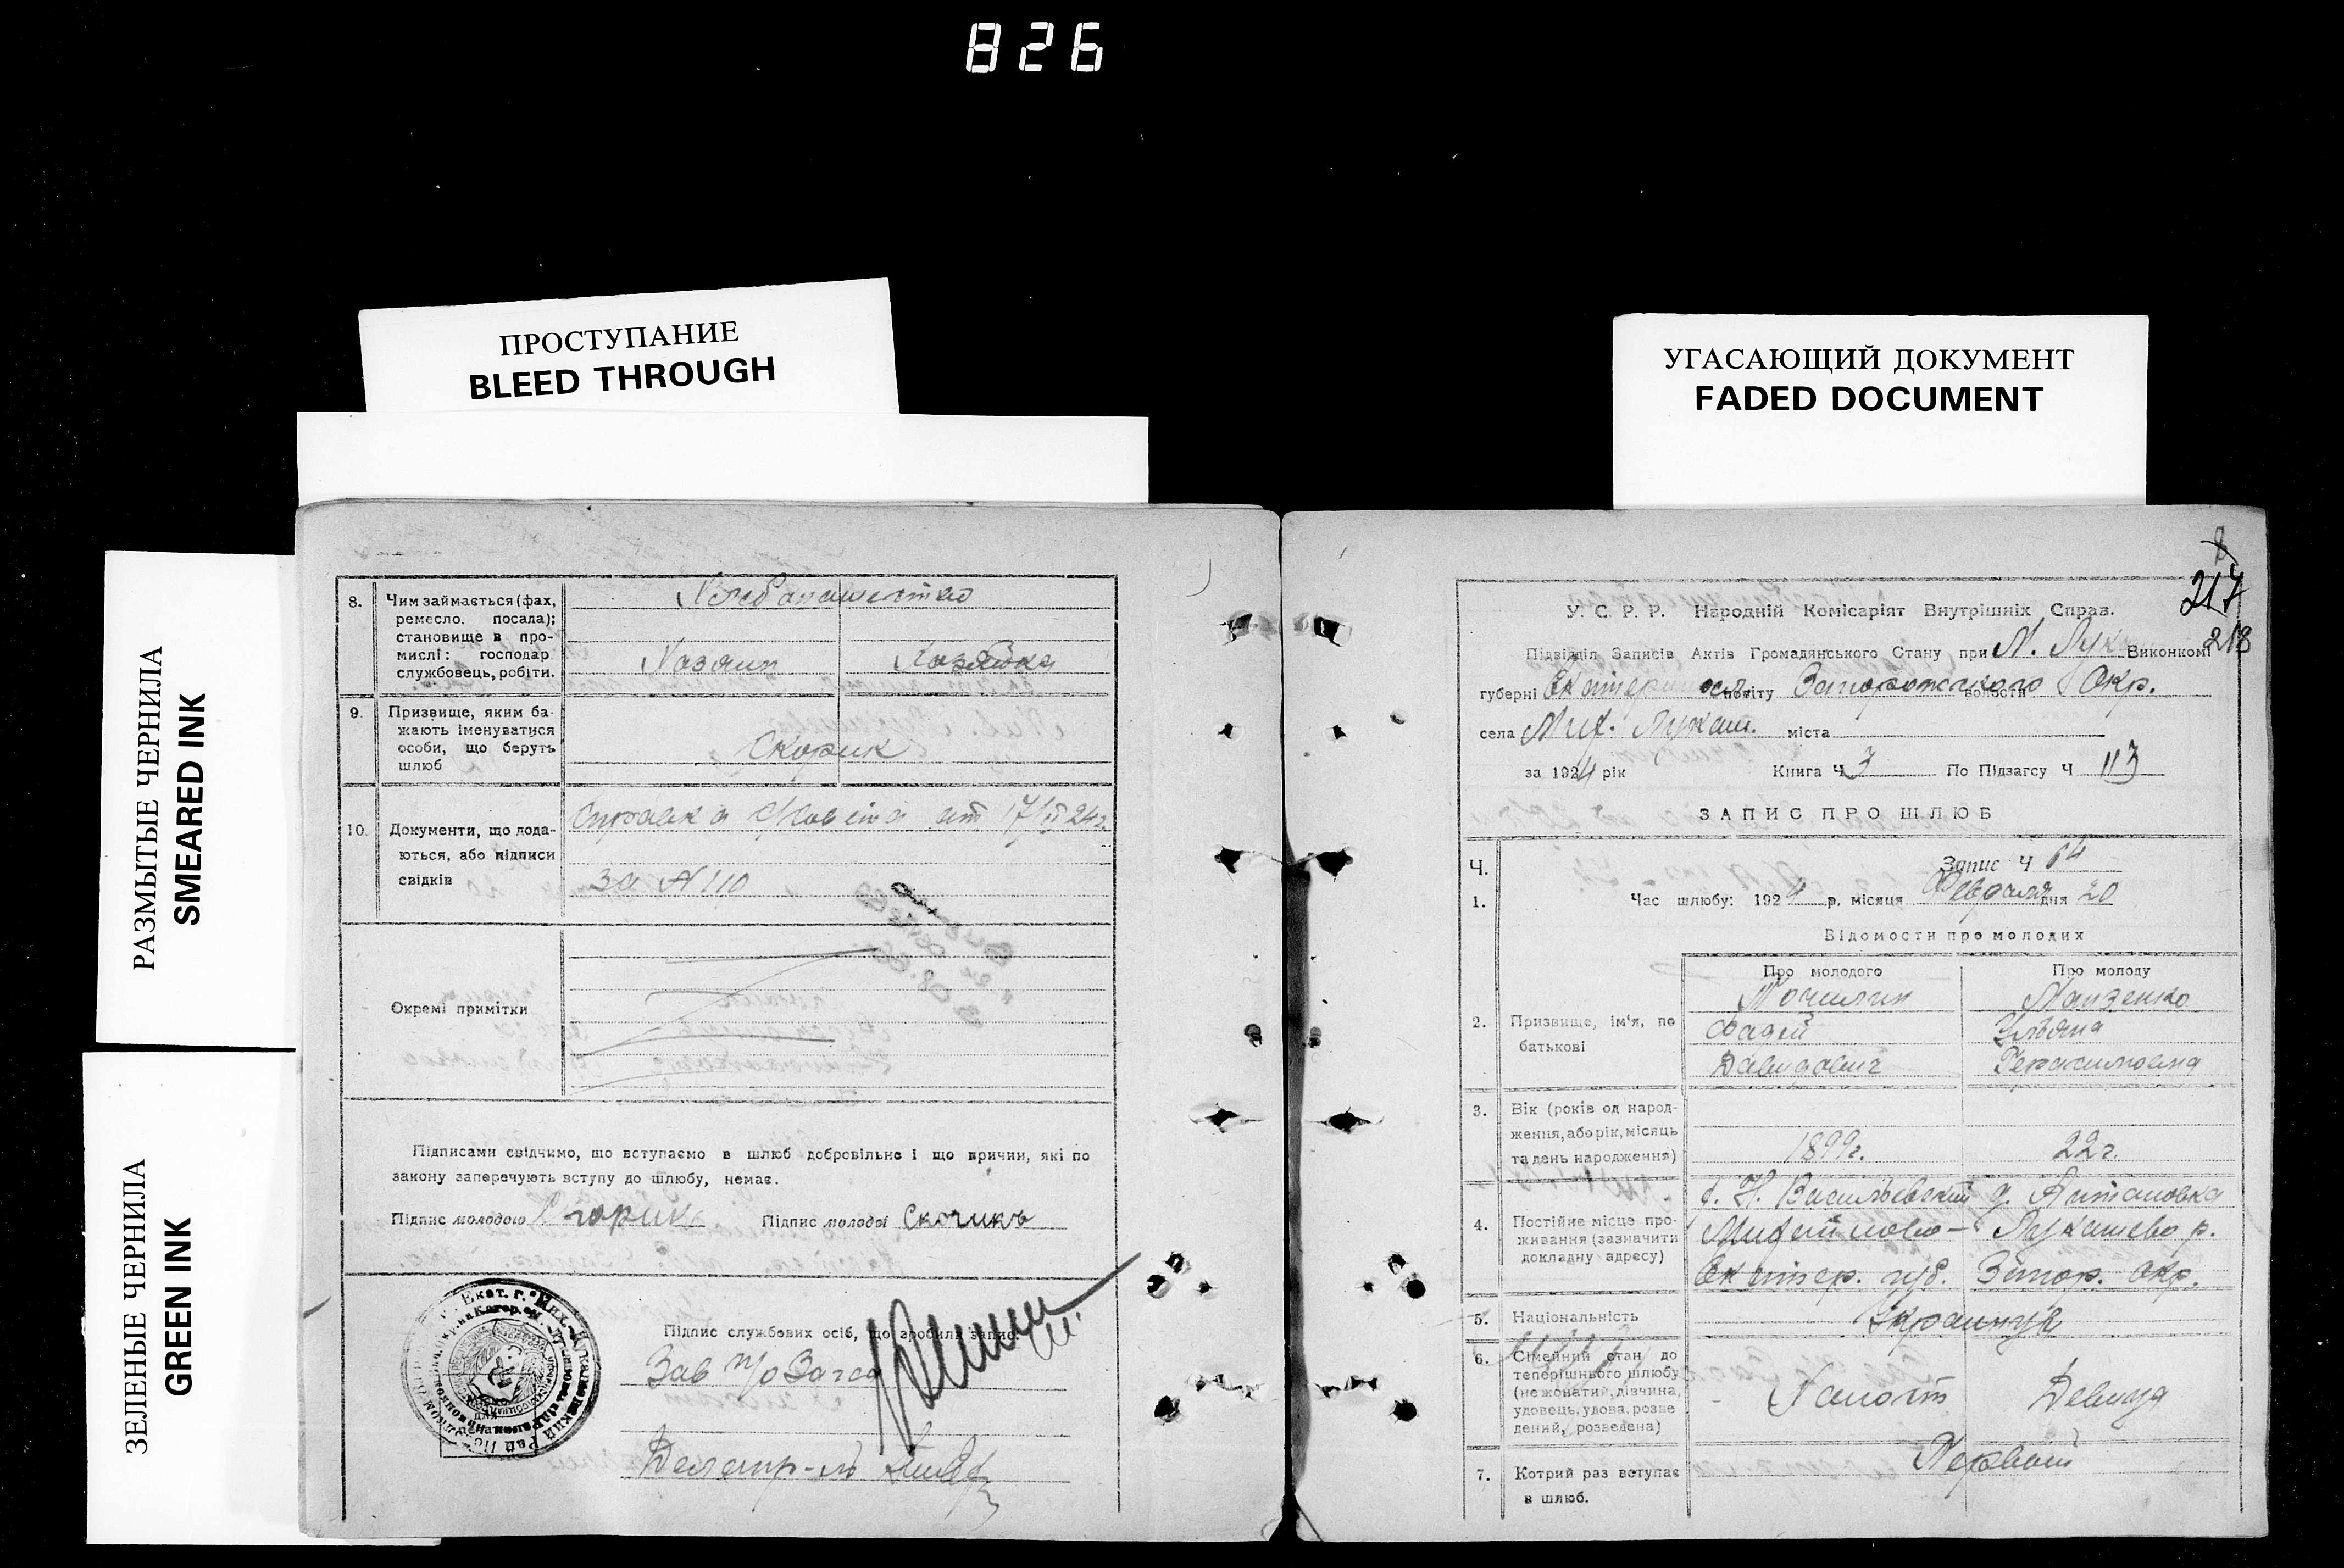 826
ПРОСТУПАНИЕ
BLEED THROUGH
УГАСАЮЩИЙ ДОКУМЕНТ
FADED DOCUMENT
РАЗМЫТЫЕ ЧЕРНИЛА
SMEARED INK
ЗЕЛЕНЫЕ ЧЕРНИЛА
GREEN INK
8. Чим займається (фах, ремесло, посада);
становище в про-
мислі: господар
службовець, робіти.
Хлебопашество
Хазяин Хозяйка
9. Призвище, яким ба-
жають іменуватися
особи, що беруть
шлюб
Скорик
10. Документи, що дода-
ються, або підписи
свідків
Справка от 17/II 24г.
за № 110
Окремі примітки
Підписами свідчимо, що вступаємо в шлюб добровільно і що причин, які по
закону заперечують вступу до шлюбу, немає.
Підпис молодого Скорик Підпис молодої
Підпис службових осіб, що зробили запис:
Зав п/о Загса
217
218
У. С. Р. Р. Народній Комісаріят Внутрішніх Справ.
Підвідділ Записів Актів Громадянського Стану при М. Лук Виконкомі
губерні Екатериносл. повіту Запорожского волости Окр.
села Мих. Лукаш. міста
за 1924 рік Книга Ч 3 По Підзагсу Ч 113
ЗАПИС ПРО ШЛЮБ
Ч. Запис Ч 64
1. Час шлюбу: 1924 р. місяця Февраля дня 20
Відомости про молодих
Про молодого Про молоду
2. Призвище, ім'я, по
батькові
Фадей Ульяна
Давидович Герасимовна
3. Вік (років од народ-
ження, або рік, місяць
та день народження)
1899г. 22г.
4. Постійне місце про-
живання (зазначити
докладну адресу)
Васильевский
Михайлово- Лукашево р.
Екатер. губ. Запор. окр.
5. Національність
6. Сімейний стан до
теперішнього шлюбу
(не жонатий, дівчина,
удовець, удова, розве
дений, розведена)
Холост Девица
7. Котрий раз вступає
в шлюб.
Первый